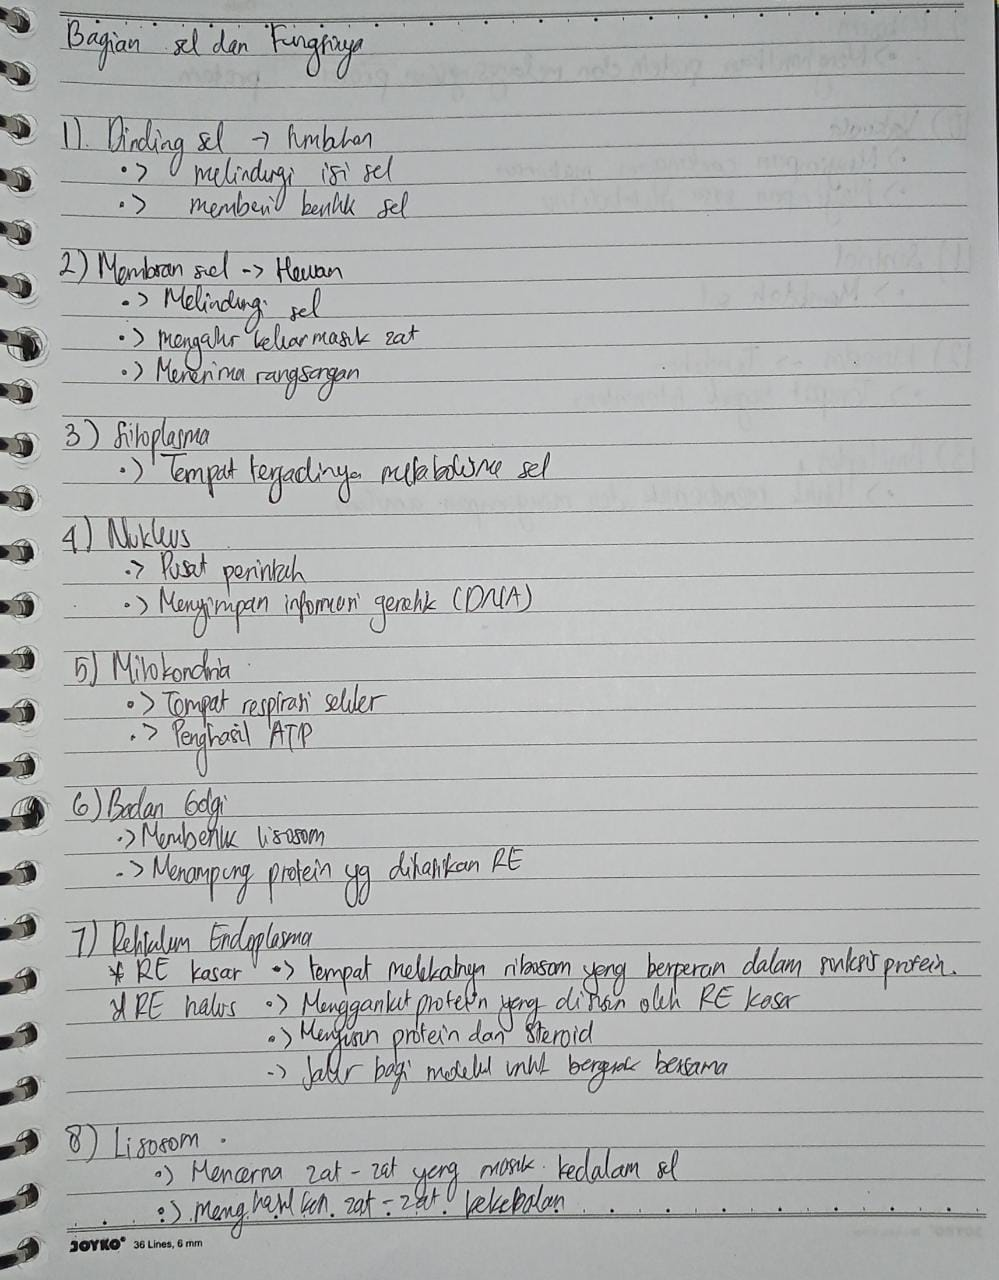 Bagian sel dan Fungsinya
1). Dinding sel → tumbuhan
•> melindungi isi sel
•> memberi bentuk sel
2) Membran sel -> Hewan
•> Melindungi sel
•> mengatur keluar masuk zat
•> Menerima rangsangan
3) Sitoplasma
•> Tempat terjadinya metabolisme sel
4) Nukleus
•> Pusat perintah
•> Menyimpan informasi genetik (DNA)
5) Mitokondria
•> Tempat respirasi seluler
•> Penghasil ATP
6) Badan Golgi
•> Membentuk lisosom
•> Menampung protein yg dihasilkan RE
7) Retikulum Endoplasma
* RE kasar •> tempat melekatnya ribosom yang berperan dalam sintesis protein.
* RE halus •> Menggangkut protein yang disusun oleh RE kasar
•> Menyusun protein dan steroid
-> Jalur bagi molekul untuk bergerak bersama
8) Lisosom
•> Mencerna zat-zat yang masuk kedalam sel
•> menghasilkan zat-zat kekebalan
JOYKO® 36 Lines, 6 mm